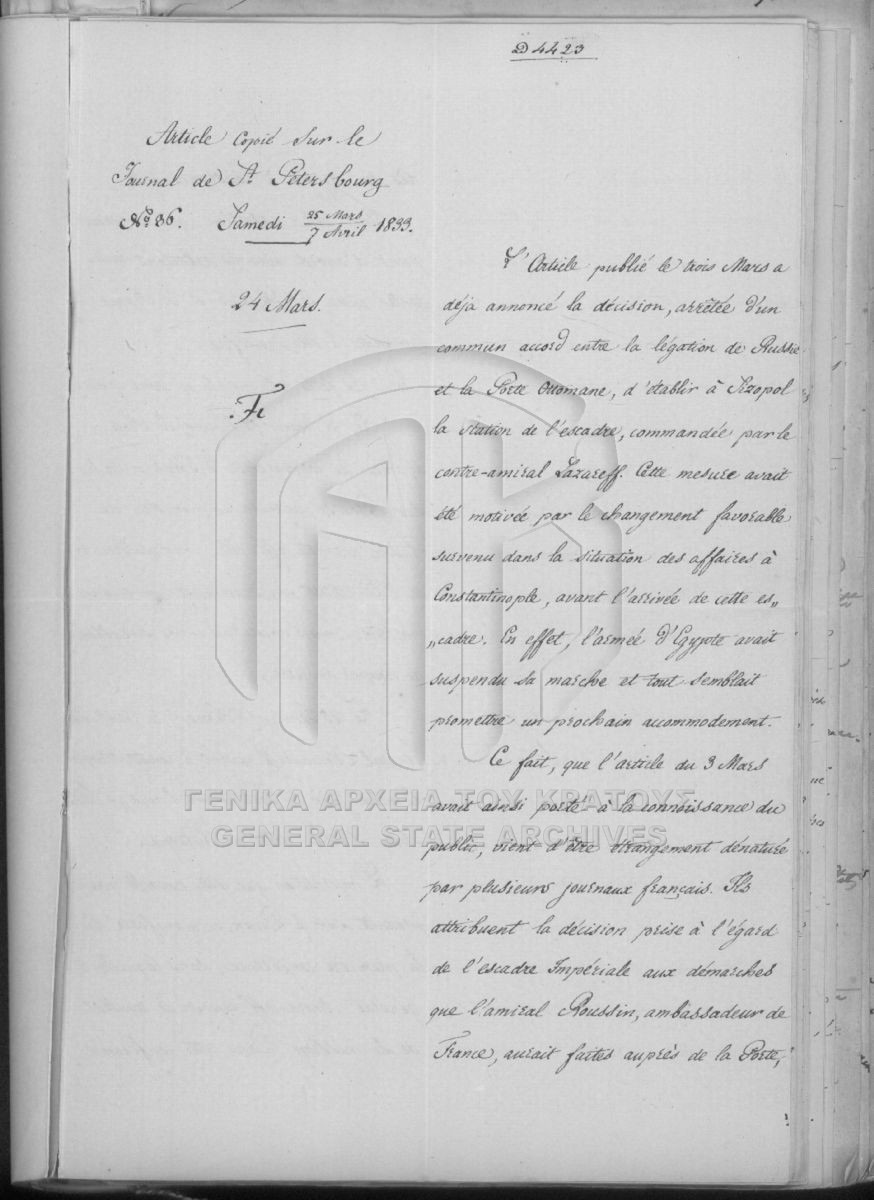 D 4423
Article Copié Sur le
Journal de St Pétersbourg
No. 36. Samedi 25 Mars / 7 Avril 1833.
24 Mars.
L'Article publié le trois Mars a
déja annoncé la décision, arrêtée d'un
commun accord entre la légation de Russie
et la Porte Ottomane, d'établir à Sizopol
la station de l'escadre, commandée par le
contre-amiral Lazareff. Cette mesure avait
été motivée par le changement favorable
survenu dans la situation des affaires à
Constantinople, avant l'arrivée de cette es„
„cadre. En effet, l'armée d'Egypte avait
suspendu sa marche et tout semblait
promettre un prochain accommodement.
Ce fait, que l'article du 3 Mars
avait ainsi porté à la connoissance du
public, vient d'être étrangement dénaturé
par plusieurs journaux français. Ils
attribuent la décision prise à l'égard
de l'escadre Impériale aux démarches
que l'amiral Roussin, ambassadeur de
France, aurait faites auprès de la Porte,
ΓΕΝΙΚΑ ΑΡΧΕΙΑ ΤΟΥ ΚΡΑΤΟΥΣ
GENERAL STATE ARCHIVES